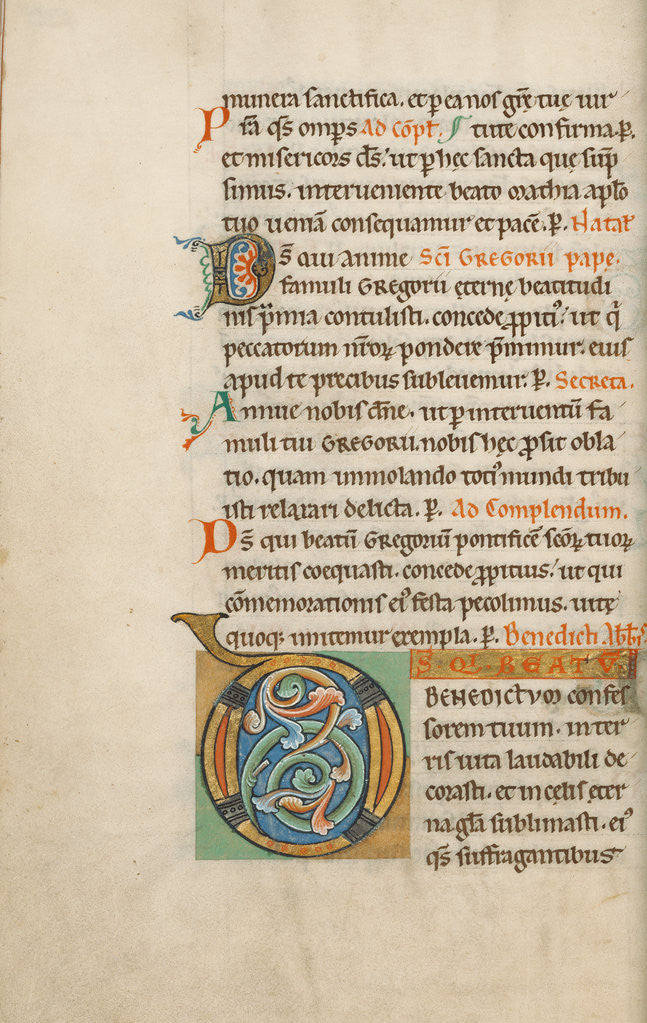 munera sanctifica. et p̄ ea nos grę̄ tuę uir
P fā q̄s om̄ps Ad cōpł. tute confirma. p̄.
et misericors d̄s. ut p̄ hęc sancta quę sūp
simus. interueniente beato mathia ap̄lo
tuo ueniā consequamur et pacē. p̄. Natał
D s̄ qui anime Sc̄i GREGORii papę.
famuli GREGorii ęternę beatitudi
nis p̄mia contulisti. concede ꝓpiti᷒. ut q̄
peccatorum nr̄oꝝ pondere p̄mimur. eius
apud te precibus subleuemur. p̄. Secreta.
Annue nobis dn̄e. ut p̄ interuentū fa
muli tui GREGORii. nobis hęc ꝓsit obla
tio. quam immolando toti᷒ mundi tribu
isti relaxari delicta. p̄. Ad Complendum.
Ds̄ qui beatū Gregoriū pontificē sc̄oꝝ tuoꝝ
meritis coequasti. concede ꝓpitius. ut qui
cōmemorationis ei᷒ festa pecolimus. uitę
quoq; imitemur exempla. p̄. Benedicti Abb̄is
D S̄ QI. BEATV̄.
BENEDICTVM confes
sorem tuum. in ter
ris uita laudabili de
corasti. et in cęlis ęter
na gl̄a sublimasti. ei᷒
q̄s suffragantibus